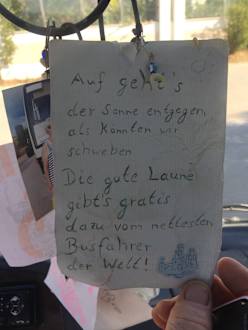 Auf geht's
der Sonne entgegen,
als könnten wir
schweben
Die gute Laune
gibt's gratis
dazu vom nettesten
Busfahrer
der Welt!